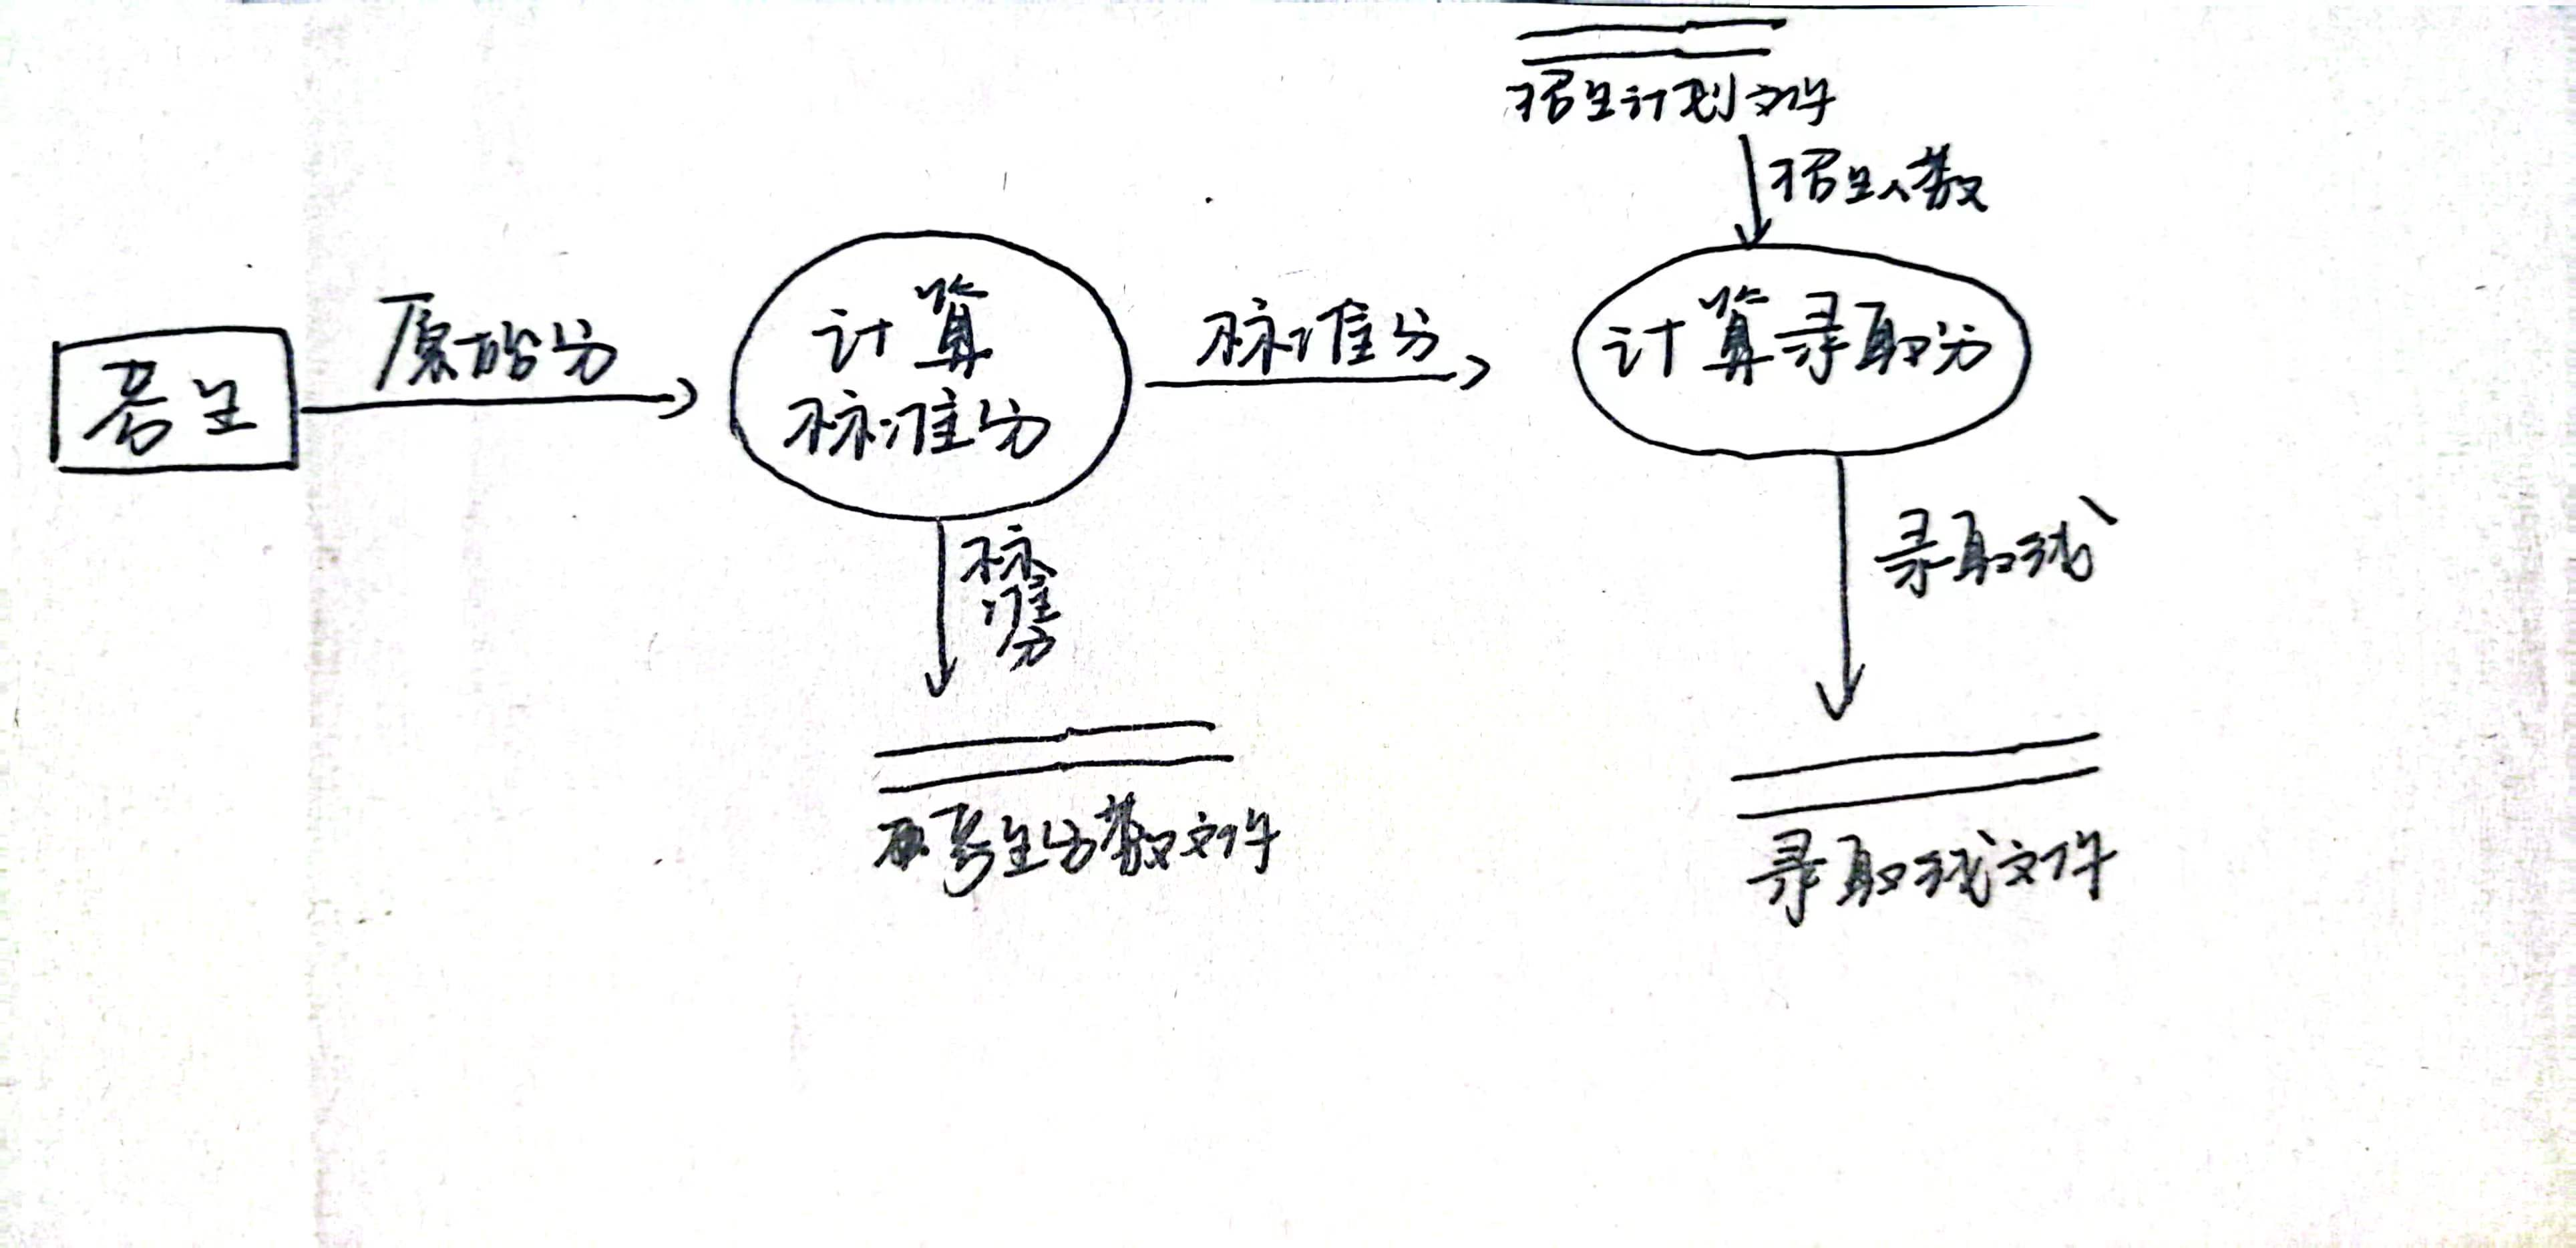 招生计划文件
招生人数
考生
原始分
计算
标准分
标准分
计算录取分
标
准
分
录取线
考生分数文件
录取线文件